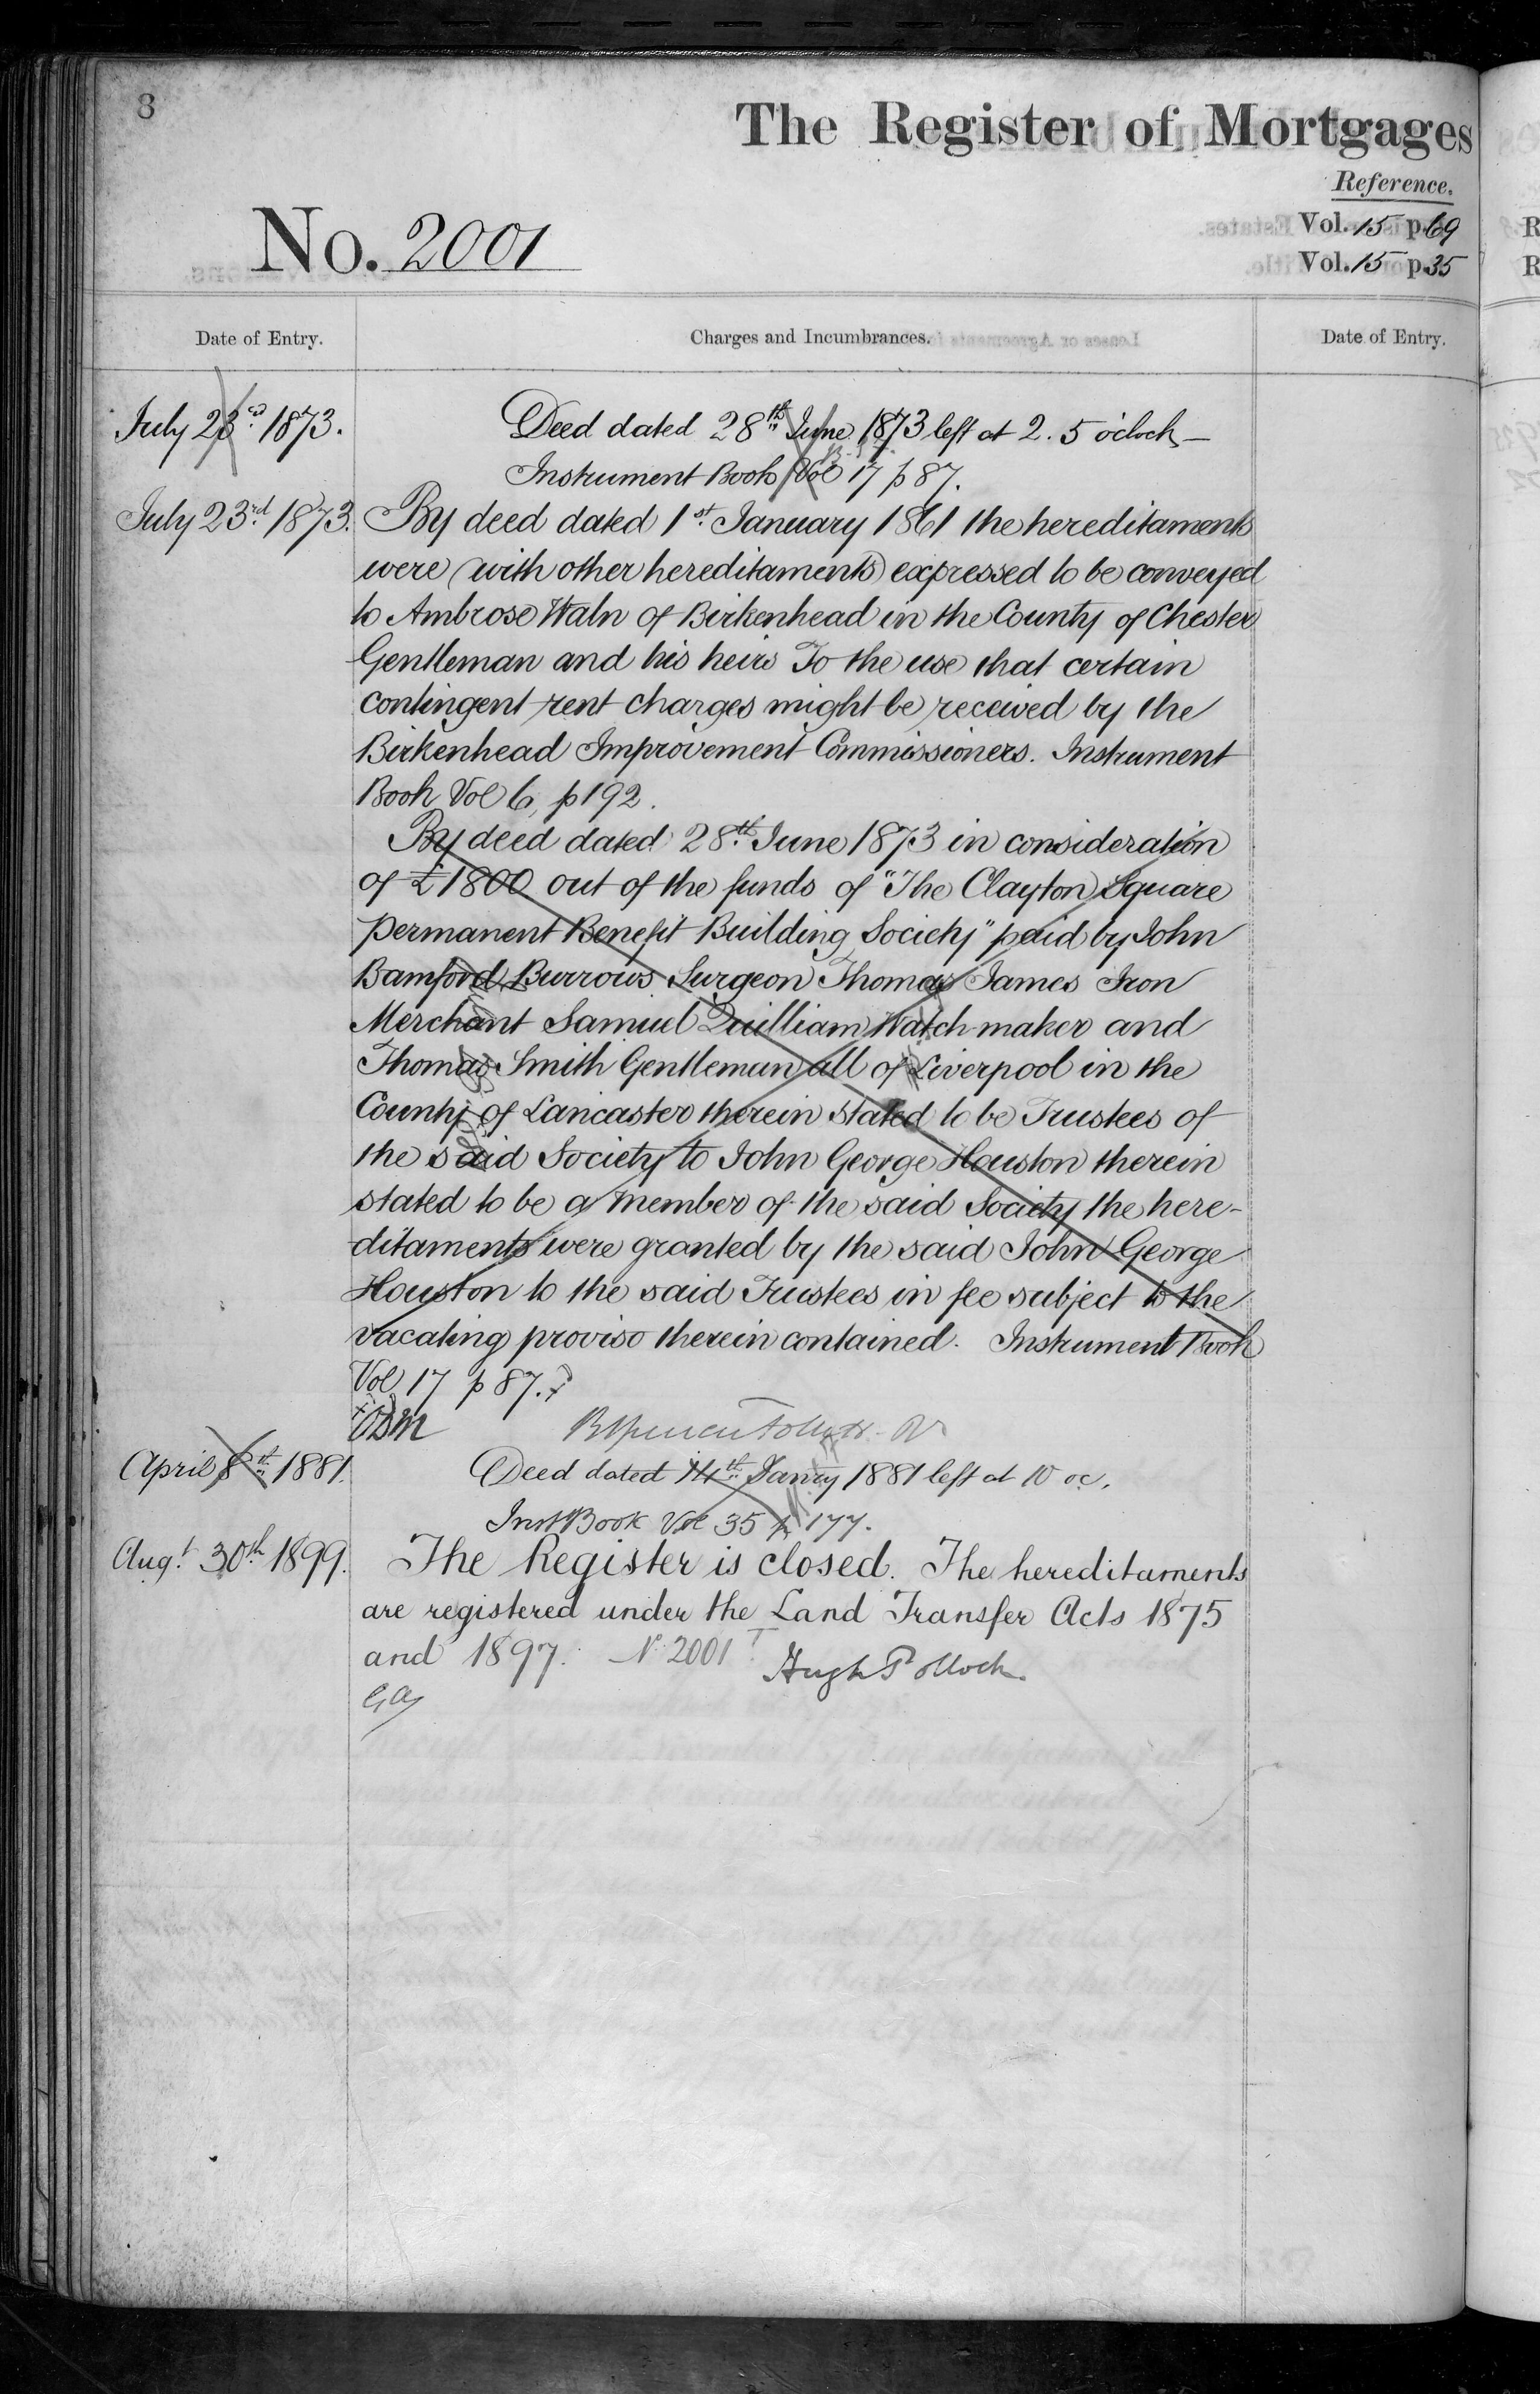 8
The Register of Mortgages
Reference.
No. 2001
Vol. 15 p. 69
Vol. 15 p. 35
Date of Entry.
Charges and Incumbrances.
Date of Entry.
July 23rd 1873.
Deed dated 28th June 1873 left at 2. 5 o'clock —
Instrument Book Vol 17 p 87.
July 23rd 1873.
By deed dated 1st January 1861 the hereditaments
were (with other hereditaments) expressed to be conveyed
to Ambrose Waln of Birkenhead in the County of Chester
Gentleman and his heirs To the use that certain
contingent rent charges might be received by the
Birkenhead Improvement Commissioners. Instrument
Book Vol 6, p 192.
By deed dated 28th June 1873 in consideration
of £1800 out of the funds of "The Clayton Square
Permanent Benefit Building Society" paid by John
Bamford Burrows Surgeon Thomas James Iron
Merchant Samuel Quilliam Watch maker and
Thomas Smith Gentleman all of Liverpool in the
County of Lancaster therein stated to be Trustees of
the said Society to John George Houston therein
stated to be a member of the said Society the here-
ditaments were granted by the said John George
Houston to the said Trustees in fee subject to the
vacating proviso therein contained. Instrument Book
Vol 17 p 87.
April 8th 1881.
Deed dated 14th Janry 1881 left at 10 oc.
Inst Book Vol 35 p 177.
Augt 30th 1899.
The Register is closed. The hereditaments
are registered under the Land Transfer Acts 1875
and 1897. No 2001
Hugh Pollock.